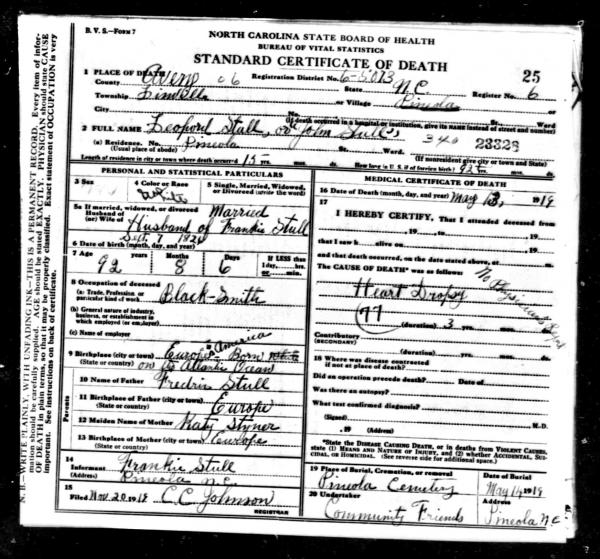 B. V. S.—FORM 7
NORTH CAROLINA STATE BOARD OF HEALTH
BUREAU OF VITAL STATISTICS
STANDARD CERTIFICATE OF DEATH
25
1 PLACE OF DEATH
County Avery 06 Registration District No. 6-5013 State N.C. Register No. 6
Township Linville or Village Pineola
City No. St. Ward
(If death occurred in a hospital or institution, give its NAME instead of street and number)
2 FULL NAME Leopord Stull, or John Stull 340 23328
(a) Residence. No. Pineola St. Ward.
(Usual place of abode) (If nonresident give city or town and State)
Length of residence in city or town where death occurred 15 yrs. mos. ds. How long in U. S. if of foreign birth? 92 yrs. mos. ds.
PERSONAL AND STATISTICAL PARTICULARS
3 Sex
4 Color or Race White
5 Single, Married, Widowed, or Divorced (write the word) Married
5a If married, widowed, or divorced
Husband of
(or) Wife of Husband of Frankie Stull
6 Date of birth (month, day, and year) Sept. 7 1826
7 Age 92 Months 8 Days 6 If LESS than 1 day, hrs. or min.
8 Occupation of deceased
(a) Trade, Profession, or particular kind of work Black-Smith
(b) General nature of industry, business, or establishment in which employed (or employer)
(c) Name of employer
9 Birthplace (city or town) Europe Born
America
(State or country) on the Atlantic Ocean
Parents
10 Name of Father Fredrin Stull
11 Birthplace of Father (city or town) Europe
(State or country)
12 Maiden Name of Mother Katy Styner
13 Birthplace of Mother (city or town) Europe
(State or country)
14
Informant Frankie Stull
(Address) Pineola N.C.
15
Filed Nov. 20 1919 C.C. Johnson
REGISTRAR
MEDICAL CERTIFICATE OF DEATH
16 Date of Death (month, day, and year) May 13, 1919
17
I HEREBY CERTIFY, That I attended deceased
from , 19 , to , 19
that I saw h alive on , 19
and that death occurred, on the date stated above, at m.
The CAUSE OF DEATH* was as follows:
No Physician
Heart Dropsy
(77)
(duration) 3 yrs. mos. ds.
Contributory
(SECONDARY)
(duration) yrs. mos. ds.
18 Where was disease contracted
if not at place of death?
Did an operation precede death? Date of
Was there an autopsy?
What test confirmed diagnosis?
(Signed) M.D.
, 19 (Address)
*State the DISEASE CAUSING DEATH, or in deaths from VIOLENT CAUSES, state (1) MEANS AND NATURE OF INJURY, and (2) whether ACCIDENTAL, SUICIDAL, or HOMICIDAL. (See reverse side for additional space.)
19 Place of Burial, Cremation, or removal Date of Burial
Pineola Cemetery May 14 1919
20 Undertaker Address
Community Friends Pineola N.C.
N. B.—WRITE PLAINLY, WITH UNFADING INK—THIS IS A PERMANENT RECORD. Every item of information should be carefully supplied. AGE should be stated EXACTLY. PHYSICIAN should state CAUSE OF DEATH in plain terms, so that it may be properly classified. Exact statement of OCCUPATION is very important. See instructions on back of certificate.